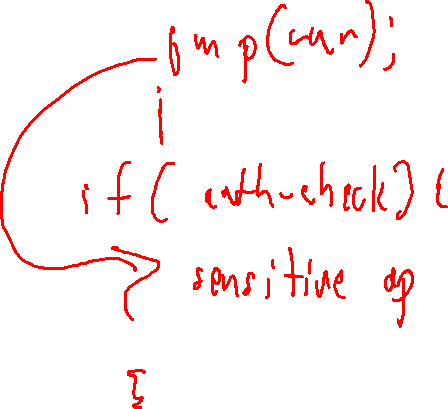 jmp(addr);
if(auth-check){
sensitive op
}